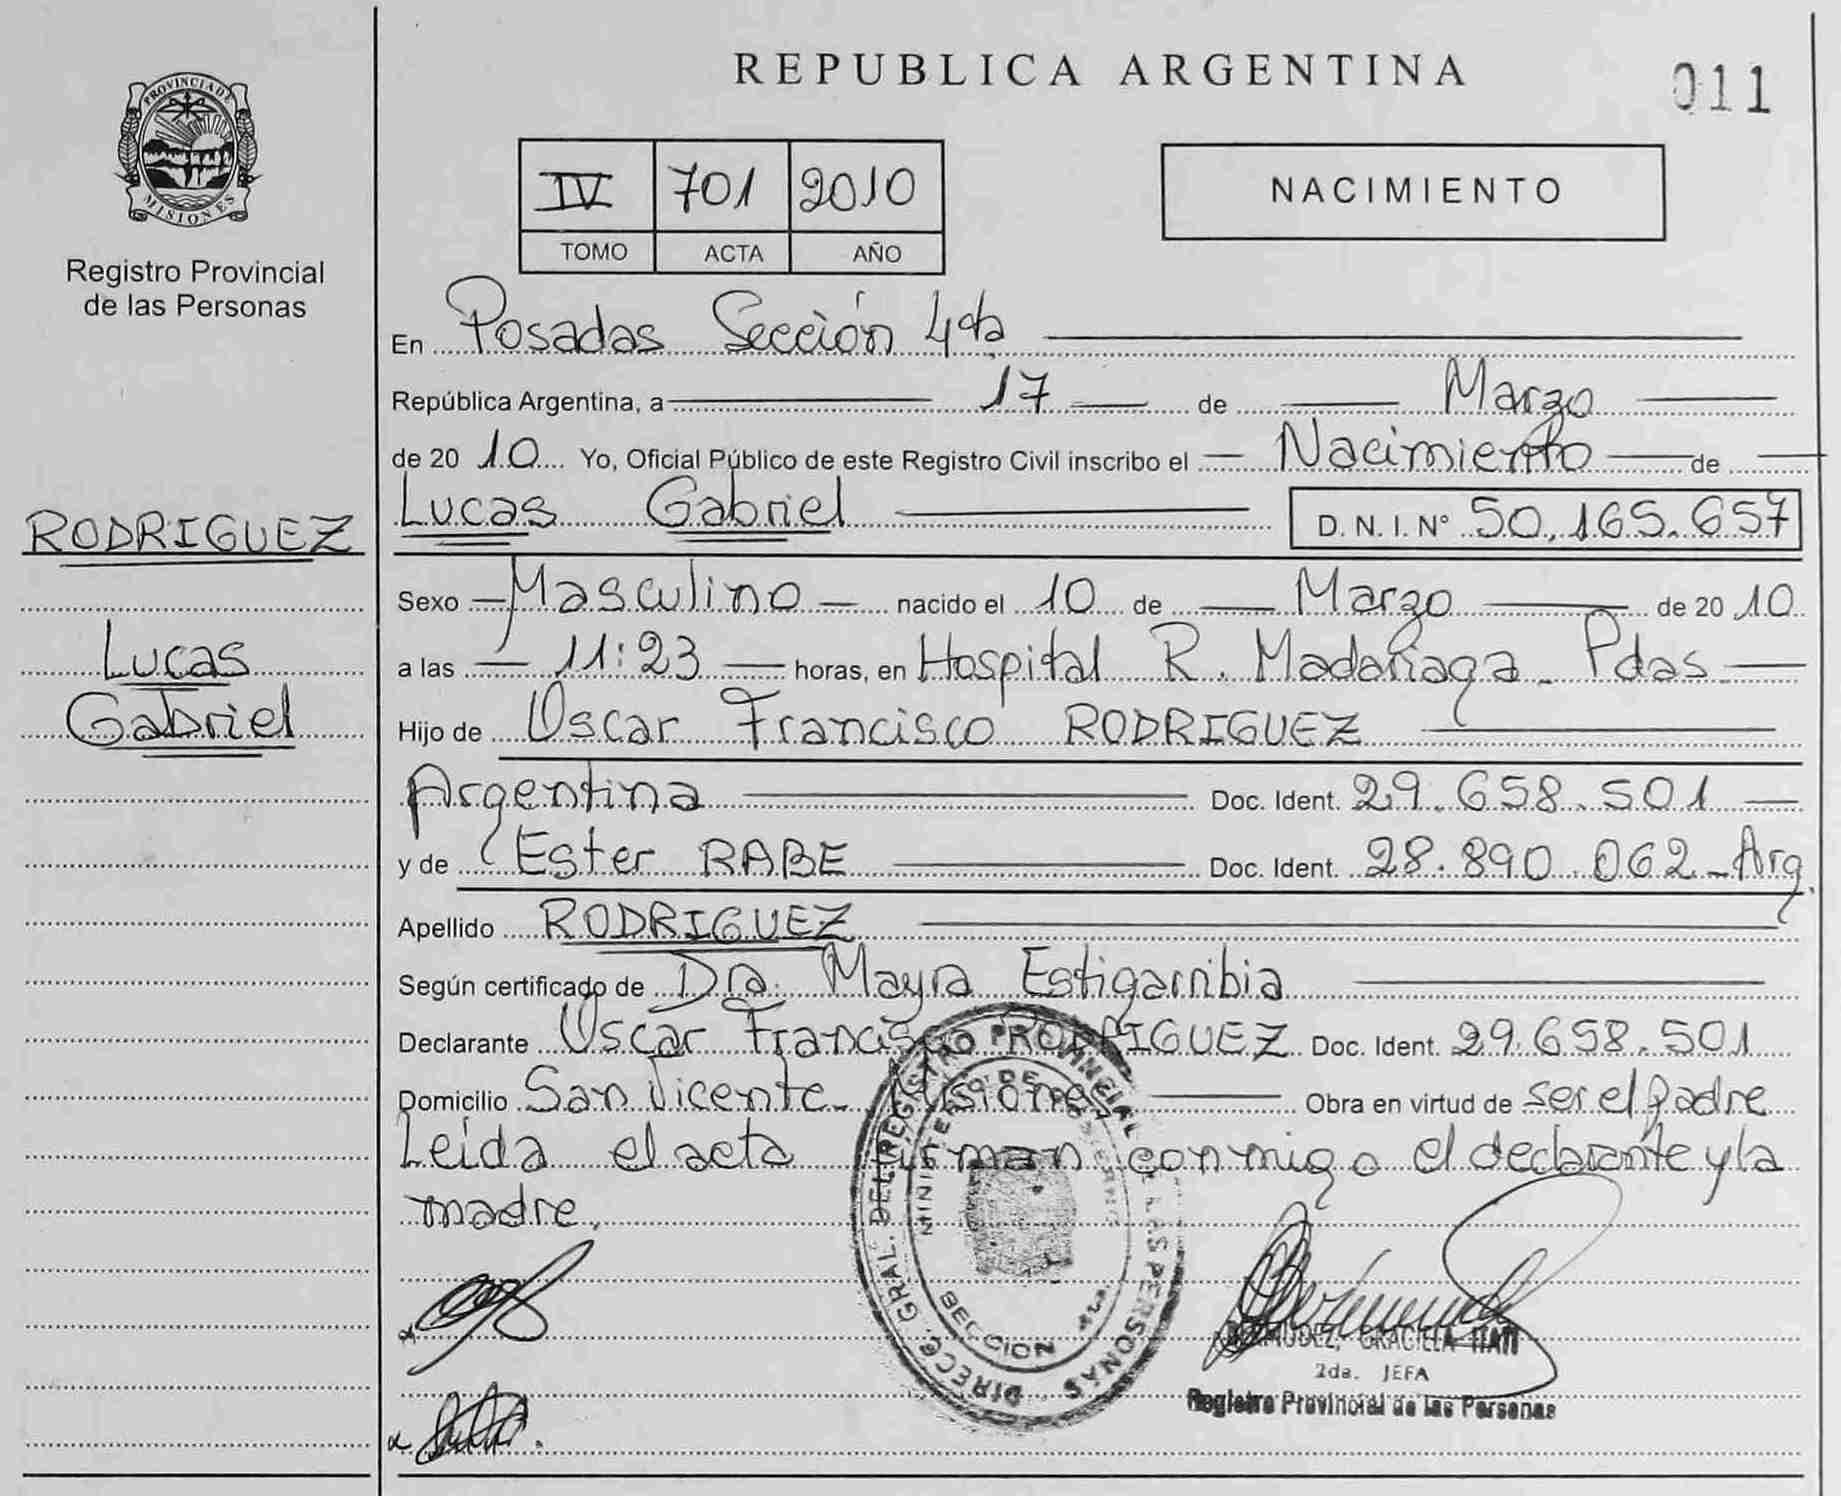 REPUBLICA ARGENTINA
011
PROVINCIA DE MISIONES
Registro Provincial
de las Personas
IV 701 2010
TOMO ACTA AÑO
NACIMIENTO
En Posadas Sección 4ta
República Argentina, a 17 de Marzo
de 20 10 Yo, Oficial Público de este Registro Civil inscribo el Nacimiento de
Lucas Gabriel D. N. I. N° 50.165.657
RODRIGUEZ
Lucas
Gabriel
Sexo Masculino nacido el 10 de Marzo de 20 10
a las 11:23 horas, en Hospital R. Madariaga - Pdas
Hijo de Oscar Francisco RODRIGUEZ
Argentina Doc. Ident. 29.658.501
y de Ester RABE Doc. Ident. 28.890.062 - Arg.
Apellido RODRIGUEZ
Según certificado de Dra. Mayra Estigarribia
Declarante Oscar Francisco RODRIGUEZ Doc. Ident. 29.658.501
Domicilio San Vicente - Misiones Obra en virtud de ser el padre
Leida el acta firman conmigo el declarante y la
madre.
DIRECC. GRAL. DEL REGISTRO PROVINCIAL DE LAS PERSONAS
MINISTERIO DE GOBIERNO
SECCION 4ta.
BERMUDEZ, GRACIELA ITATI
2da. JEFA
Registro Provincial de las Personas